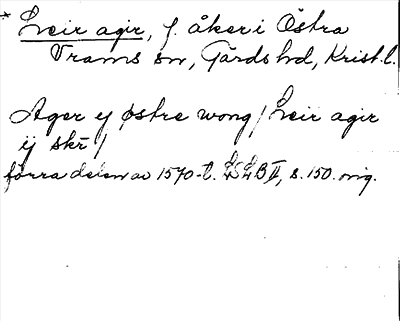 * Leir agir, f. åker i Östra
Vrams sn, Gärds hd, Krist. l.
Ager ij østre wong / Leir agir
ij skr /
förra delen av 1570-t. LSLB II, s. 150. orig.